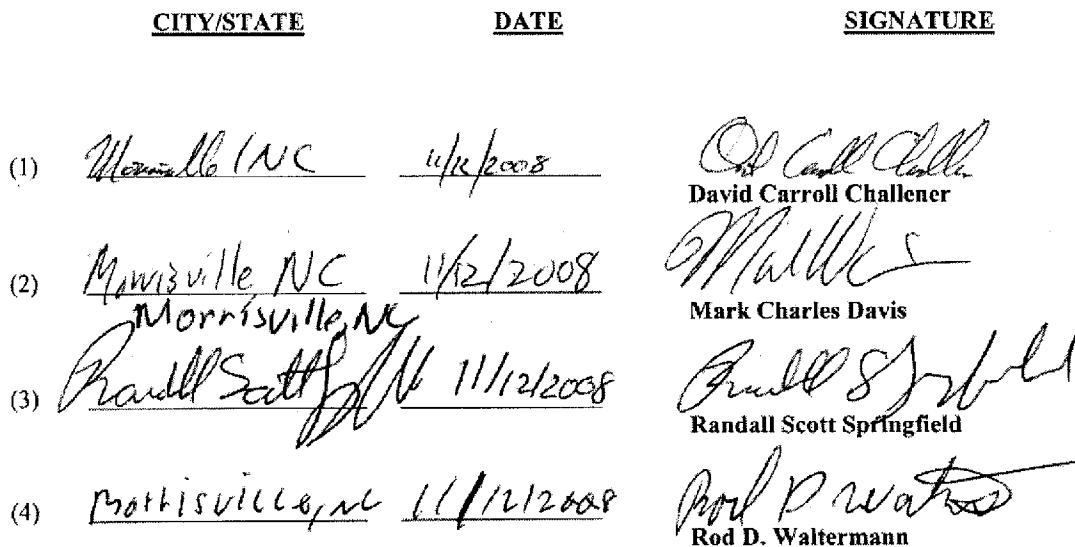 CITY/STATE DATE SIGNATURE
(1) Morrisville / NC 11/12/2008
David Carroll Challener
(2) Morrisville NC 11/12/2008
Mark Charles Davis
Morrisville, NC
(3) Randall Scott 11/12/2008
Randall Scott Springfield
(4) Morrisville, NC 11/12/2008 Rod D
Rod D. Waltermann